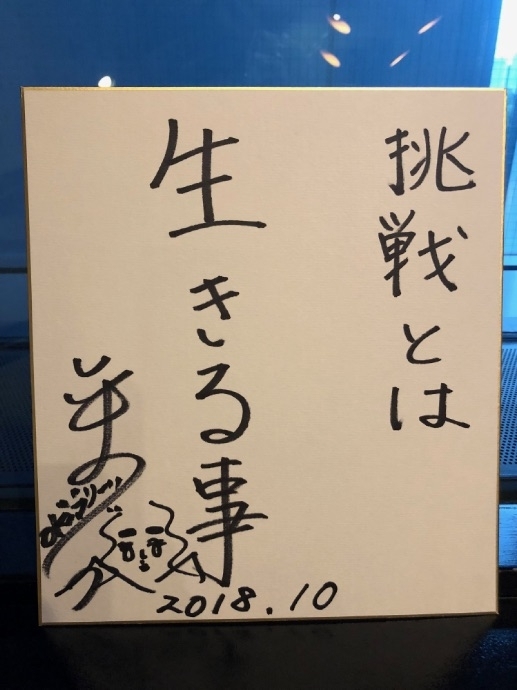 挑戦とは
生きる事
2018.10